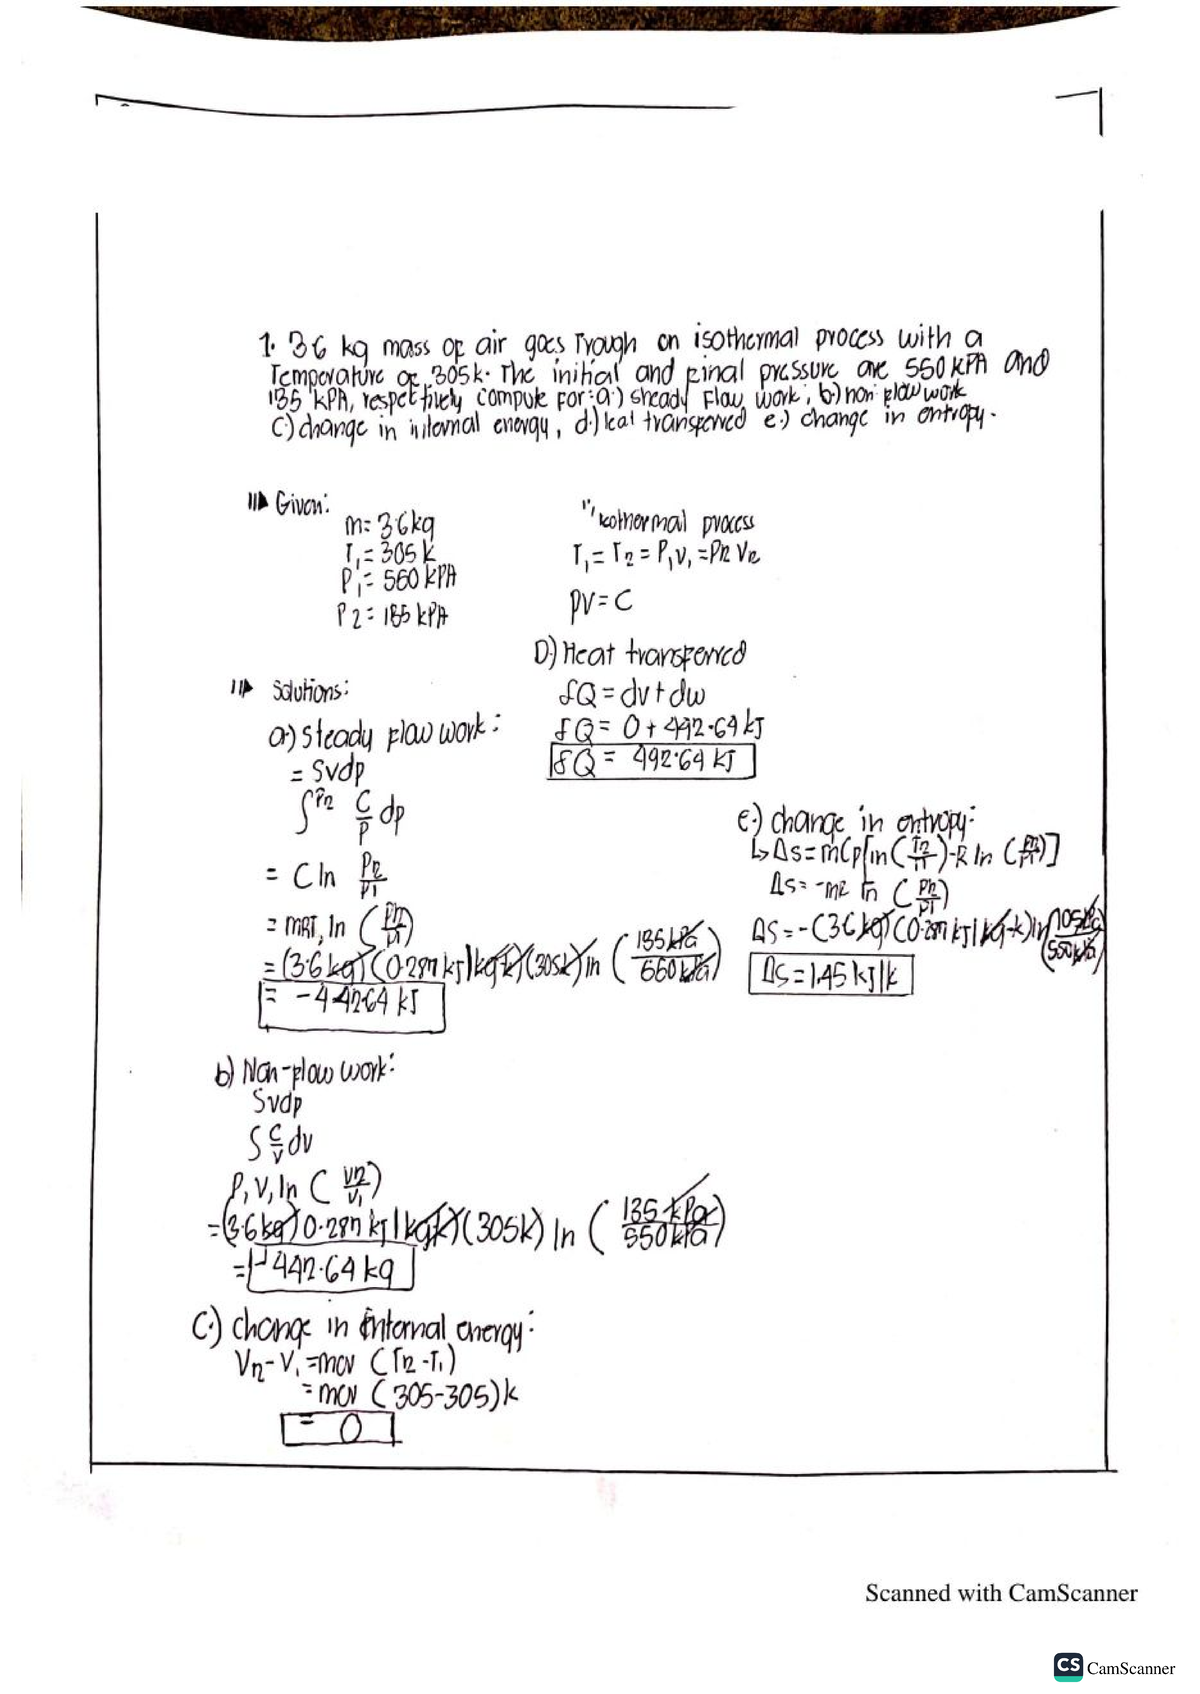 1. 36 kg mass of air goes Trough an isothermal process with a
Temperature of 305k. The initial and final pressure are 550 kPA and
135 kPA, respectively compute for: a.) steady Flow work; b.) non flow work
C.) change in internal energy, d.) heat transferred e.) change in entropy.
Given:
m= 3.6kg
T₁= 305 k
P₁= 550 kPA
P2= 135 kPA
isothermal process
T₁= T2 = P₁V₁ = P2 V2
PV= C
D.) Heat transferred
δQ = dv + dw
δQ = 0 + 442.64 kJ
δQ = 442.64 kJ
Solutions:
a.) steady flow work:
= Svdp
∫P2 C/P dp
= C ln P2/P1
= mRT₁ ln (P2/P1)
= (3.6 kg)(0.287 kJ/kg k)(305k) ln (135 kPa/550 kPa)
= -442.64 kJ
e.) change in entropy:
↳ Δs = mCp[ln(T2/T1)-R ln (P2/P1)]
Δs= -mR ln (P2/P1)
ΔS = -(3.6 kg)(0.287 kJ/kg-k) ln
ΔS = 1.45 kJ/k
b) Non-flow work:
Svdp
S C/V dv
P₁V₁ln ( V2/V₁)
= (3.6 kg) 0.287 kJ/kgk)(305k) ln ( 135 kPa/550 kPa)
= 442.64 kg
C.) change in internal energy:
V2-V₁ =mcv (T2-T₁)
= mcv (305-305)k
= 0
Scanned with CamScanner
CS CamScanner